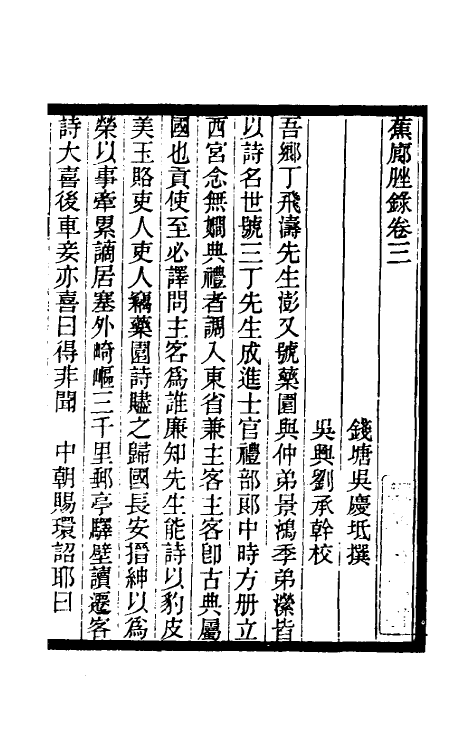 蕉廊脞錄卷三
錢塘吳慶坻撰
吳興劉承幹校
吾鄉丁飛濤先生澎又號藥園與仲弟景鴻季弟瀠皆
以詩名世號三丁先生成進士官禮部郎中時方册立
西宮念無嫺典禮者調入東省兼主客主客卽古典屬
國也貢使至必譯問主客爲誰廉知先生能詩以豹皮
美玉賂吏人吏人竊藥園詩贐之歸國長安搢紳以爲
榮以事牽累謫居塞外崎嶇三千里郵亭驛壁讀遷客
詩大喜後車妾亦喜曰得非聞　中朝賜環詔耶曰